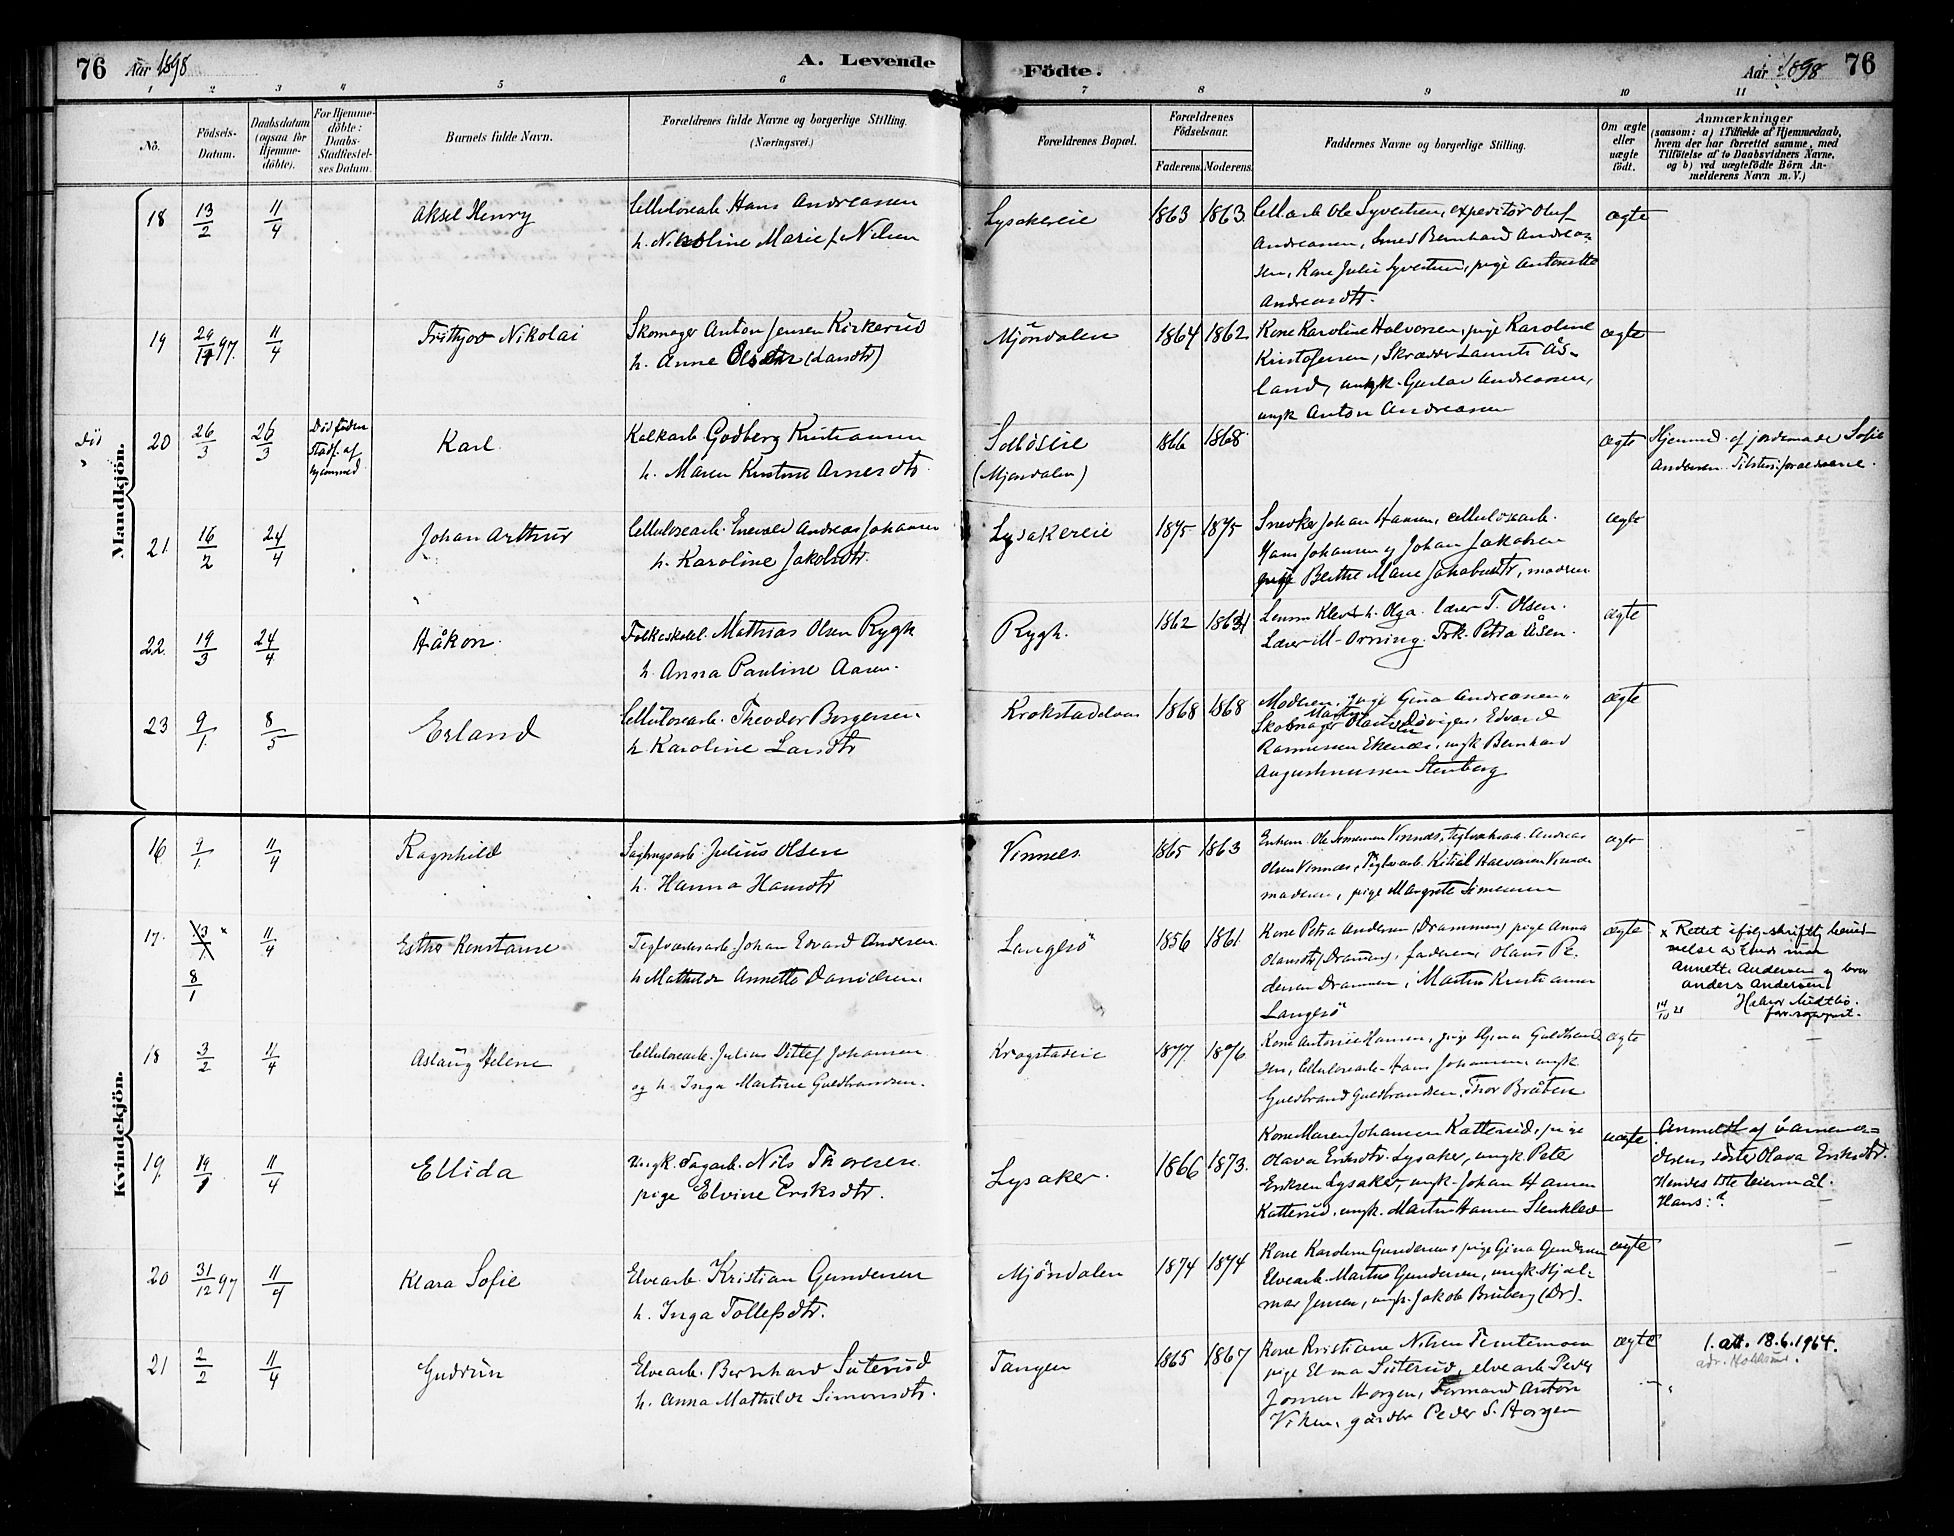 76 Aar 1898
A. Levende
Födte.
Aar 1898 76
1 2 3 4 5 6 7 8 9 10 11
No.
Födsels-Datum.
Daabsdatum (ogsaa for Hjemme-döbte).
For Hjemme-döbte: Daabs-Stadfæstel-ses Datum.
Barnets fulde Navn.
Forældrenes fulde Navne og borgerlige Stilling.
(Næringsvei.)
Forældrenes Bopæl.
Forældrenes Födselsaar.
Faderens. Moderens.
Faddernes Navne og borgerlige Stilling.
Om ægte eller uægte födt.
Anmærkninger
(saasom: a) i Tilfælde af Hjemmedaab,
hvem der har forrettet samme, med
Tilföielse af to Daabsvidners Navne,
og b) ved uægtefödte Börn An-
melderens Navn m. V.)
Mandkjön.
18 13/2 11/4 Aksel Henry
Cellulosearb. Hans Andreasen
h. Nikoline Marie f. Nilsen
Lysakereie 1863 1863
Cellarb. Ole Syvertsen, expeditör Oluf
Andreasen, Smed Bernhard Andrea-
sen, Kone Julie Syvertsen, pige Antonette
Andreasdtr.
ægte
19 29/12 97. 11/4 Frithjov Nikolai
Skomager Anton Jensen Kirkerud
h. Anne Olsdtr (Larsdtr)
Mjöndalen 1864 1862
Kone Karoline Halvorsen, pige Karoline
Kristofersen, Skrædder Laurits Ås-
land, ungk. Gustav Andreasen,
ungk Anton Andreasen
ægte
död 20 26/3 26/3 Död föden Stadf. af hjemmed
Karl
Kalkarb. Godberg Kristiansen
h. Maren Kristine Arnesdtr.
Solöseie
(Mjöndalen)
1866 1868
ægte
Hjemmed. af jordemoder Sofie
Andersen. Tilst. forældrene.
21. 16/2 24/4 Johan Arthur
Cellulosearb. Enevald Andreas Johansen
h. Karoline Jakobsdtr.
Lysakereie 1875 1875
Snedker Johan Hansen, cellulösearb.
Hans Johansen og Johan Jakobsen
pige Berthe Marie Jakobsdtr, moderen
ægte
22. 19/3 24/4 Håkon.
Folkeskolel. Mathias Olsen Rygh
h. Anna Pauline Aasen.
Rygh. 1862 1864
Lensm Klev h. Olga. Lærer T. Olsen.
Lærer M. Orning. Frk. Petra Åsen.
ægte
23 9/1. 8/5 Erland
Cellulosearb. Theodor Borgersen
h. Karoline Larsdtr
Krokstadelven 1868 1868
Moderen, pige Gina Andreasen
Skomager Martin Olausen, Edvard
Rasmussen Ekenæs, ungk Bernhard
Augustinussen Stenberg
ægte
Kvindekjön.
16 9/1. 11/4 Ragnhild
Sagbrugsarb. Julius Olsen
h. Hanna Hansdtr
Vinnes. 1865 1863
Enkem. Ole Simensen Vinnæs, Teglverksarb. Andreas
Olsen Vinnæs, Teglvarb. Kittil Halvorsen Vinnes
moderen, pige Margrete Simensen
ægte
17. 13/1. × 11/4 Esther Konstanse
8/1
Teglverksarb. Johan Edvard Andersen
h. Mathilde Annette Danielsen
Langesö 1856 1861
Kone Petra Andersen (Drammen) pige Anna
Olausdtr (Drammen), faderen, Olaus Pe-
dersen Drammen, Martin Kristiansen
Langesö
ægte
× Rettet ifölg skriftlig bevid-
nelse av hendes mor
Annette Andersen og bror
Anders Andersen.
14/10 21
sogneprest.
18 3/2 11/4 Aslaug Helene
Cellulosearb. Julius Ditlef Johansen
og h. Inga Martine Guldbrandsen.
Krogstadeie 1877 1876
Kone Antonie Hansen, pige Gina Guldbrand-
sen, Cellulosearb. Hans Johansen, ungk
Guldbrand Guldbrandsen, Thor Bråten
ægte
19. 19/1 11/4 Ellida
Ungk. Sagarb. Nils Thoresen.
pige Elvine Eriksdtr.
Lysaker. 1866 1873.
Kone Maren Johansen Katterud, pige
Olava Eriksdtr. Lysaker, ungk. Peter
Eriksen Lysaker, ungk. Johan Hansen
Katterud, ungk. Martin Hansen Stenklev
uægte
Anmeldt af barnemo-
derens söster Olava Eriksdtr.
Hendes 1ste leiermål.
Hans: ?
20 31/12 97 11/4 Klara Sofie
Elvearb. Kristian Gundersen
h. Inga Tollefsdtr.
Mjöndalen 1874 1874
Kone Karoline Gundersen, pige Gina Gundersen
Elvearb. Martin Gundersen, ungk. Hjal-
mar Jensen, ungk. Jakob Bruberg (Dr).
ægte
21 2/2 11/4 Gudrun
Elvearb. Bernhard Süterud
h. Anna Mathilde Simonsdtr.
Tangen 1865 1867
Kone Kristiane Nilsen
pige Elma Süterud, elvearb Peder
Jonsen Horgen, Formand Anton
Viken, gårdbr Peder S. Horgen
ægte
1. att. 18.6.1964.